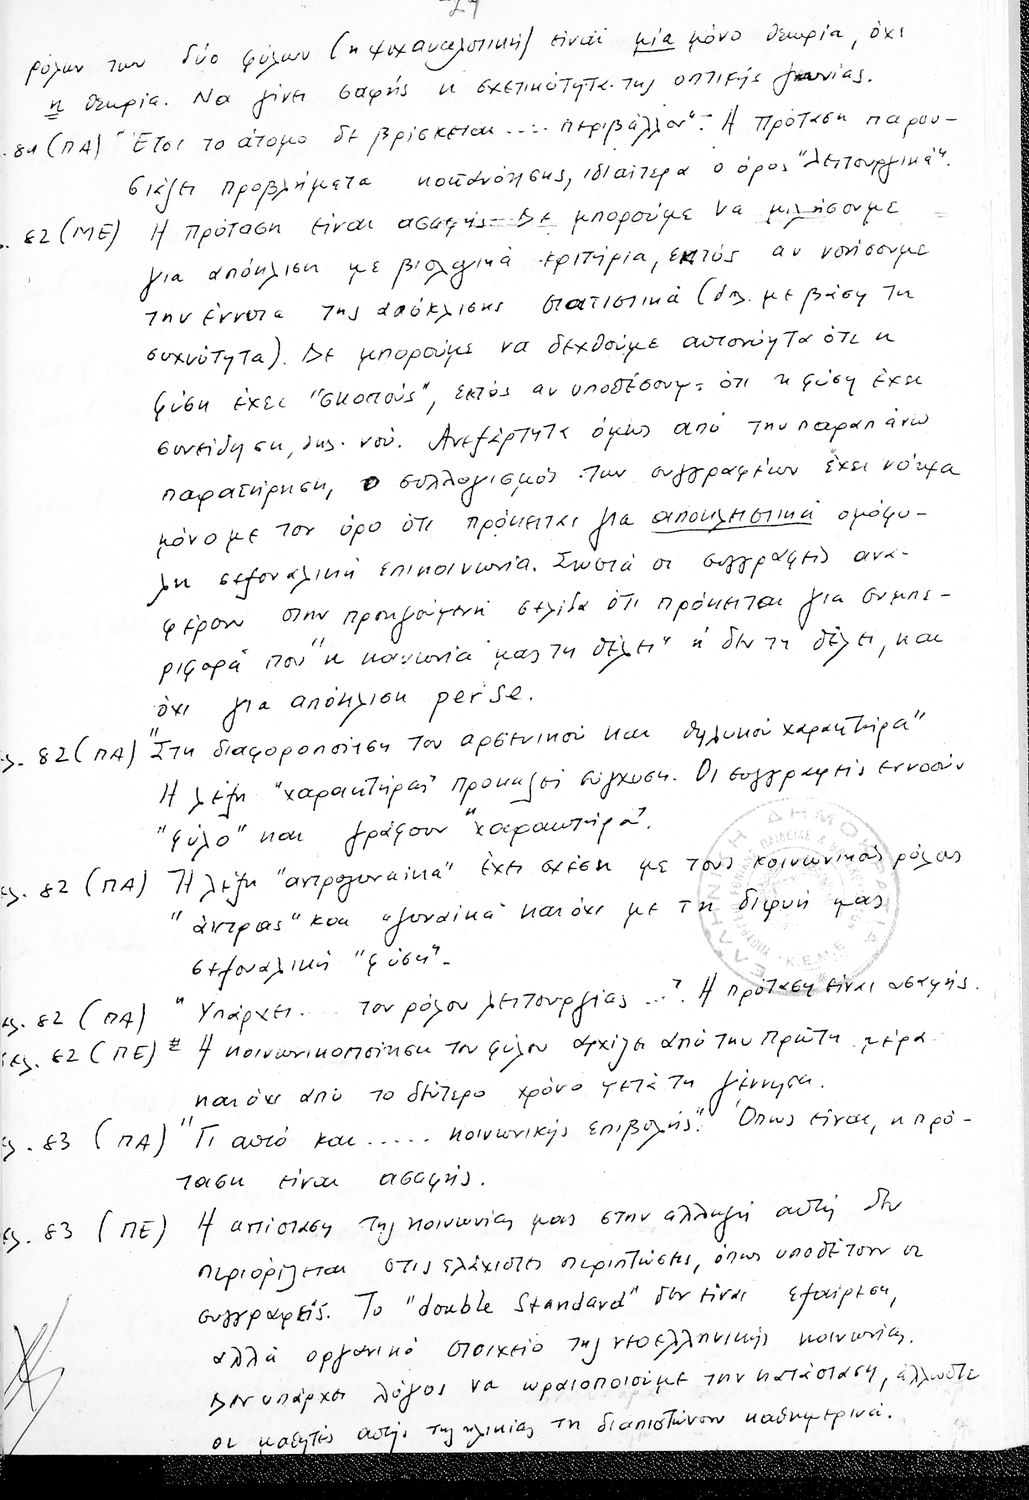 -24
ρόλων των δύο φύλων (η ψυχαναλυτική) είναι μία μόνο θεωρία, όχι
η θεωρία. Να γίνει σαφής η σχετικότητα της οπτικής γωνίας.
. 81 (ΠΑ) "Έτσι το άτομο δε βρίσκεται .... περιβάλλον". Η πρόταση παρου-
σιάζει προβλήματα κατανόησης, ιδιαίτερα ο όρος "λειτουργικά".
. 82 (ΜΕ) Η πρόταση είναι ασαφής. Δε μπορούμε να μιλήσουμε
για απόκλιση με βιολογικά κριτήρια, εκτός αν νοήσουμε
την έννοια της απόκλισης στατιστικά (δηλ. με βάση τη
συχνότητα). Δε μπορούμε να δεχθούμε αυτονόητα ότι η
φύση έχει "σκοπούς", εκτός αν υποθέσουμε ότι η φύση έχει
συνείδηση, δηλ. νού. Ανεξάρτητα όμως από την παραπάνω
παρατήρηση, ο συλλογισμός των συγγραφέων έχει νόημα
μόνο με τον όρο ότι πρόκειται για αποκλειστικά ομόφυ-
λη σεξουαλική επικοινωνία. Σωστά οι συγγραφείς ανα-
φέρουν στην προηγούμενη σελίδα ότι πρόκειται για συμπε-
ριφορά που "η κοινωνία μας τη θέλει" ή δεν τη θέλει, και
όχι για απόκλιση per se.
ς. 82 (ΠΑ) "Στη διαφοροποίηση του αρσενικού και θηλυκού χαρακτήρα"
Η λέξη "χαρακτήρας" προκαλεί σύγχυση. Οι συγγραφείς εννοούν
"φύλο" και γράφουν "χαρακτήρα".
ελ. 82 (ΠΑ) Η λέξη "αντρογυναίκα" έχει σχέση με τους κοινωνικούς ρόλους
"άντρας" και "γυναίκα" και όχι με τη διφυή μας
σεξουαλική "φύση".
ελ. 82 (ΠΑ) "Υπάρχει... του ρόλου λειτουργίας ...". Η πρόταση είναι ασαφής.
ελ. 82 (ΠΕ) Η κοινωνικοποίηση του φύλου αρχίζει από την πρώτη μέρα
και όχι από το δεύτερο χρόνο μετά τη γέννηση.
ελ. 83 (ΠΑ) "Γι αυτό και ..... κοινωνικής επιβολής". Όπως είναι, η πρό-
ταση είναι ασαφής.
ελ. 83 (ΠΕ) Η αντίσταση της κοινωνίας μας στην αλλαγή αυτή δεν
περιορίζεται στις ελάχιστες περιπτώσεις, όπως υποθέτουν οι
συγγραφείς. Το "double Standard" δεν είναι εξαίρεση,
αλλά οργανικό στοιχείο της νεοελληνικής κοινωνίας.
Δεν υπάρχει λόγος να ωραιοποιούμε την κατάσταση, άλλωστε
οι μαθητές αυτής της ηλικίας τη διαπιστώνουν καθημερινά.
ΕΛΛΗΝΙΚΗ ΔΗΜΟΚΡΑΤΙΑ
Κ.Ε.Μ.Ε